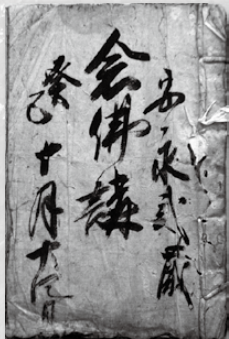 安永貳歳
念佛講
癸巳十月十日